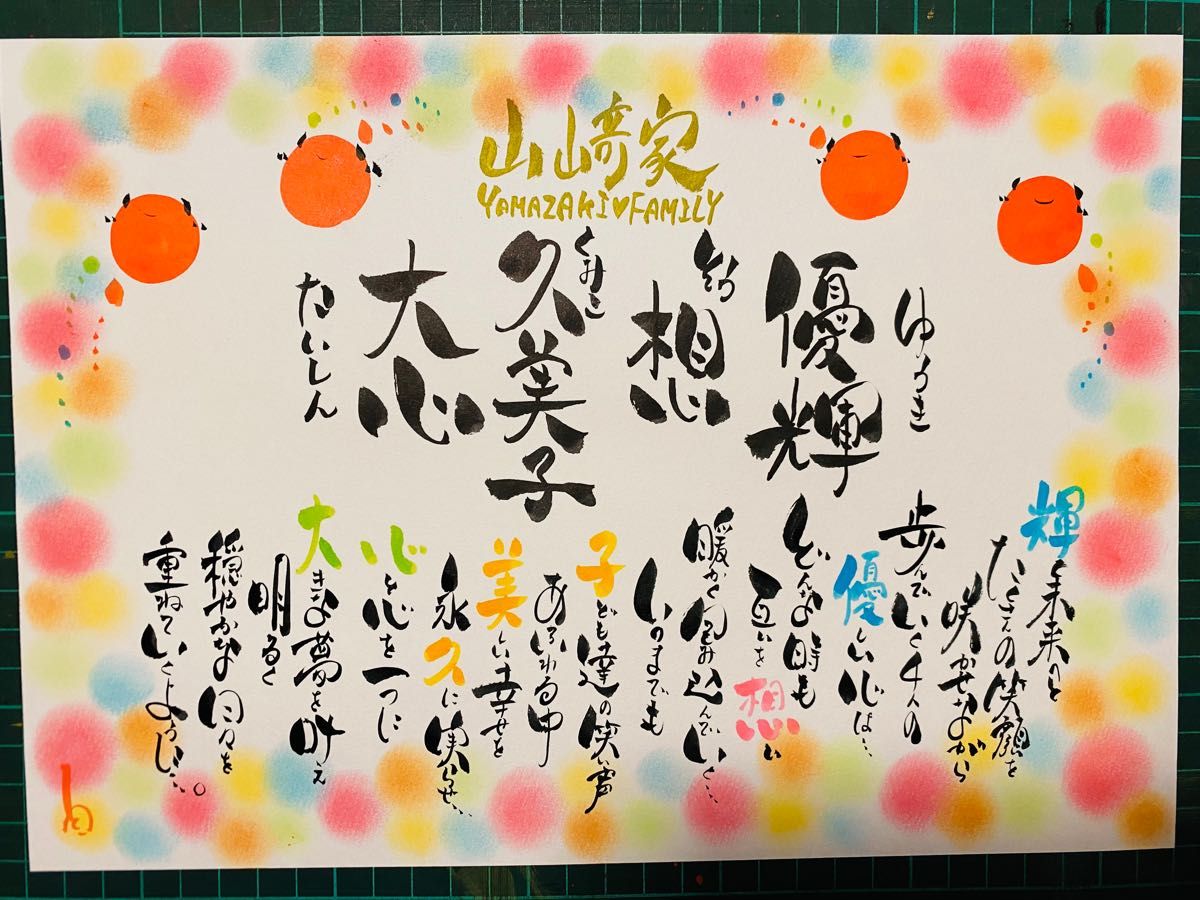 山﨑家
YAMAZAKI♥FAMILY
ゆうき
優輝
想
くみこ
久美子
大心
たいしん
輝く未来へと
たくさんの笑顔を
咲かせながら
歩んでいく4人の
優しい心は…
どんな時も
互いを想い
暖かく包み込んでいく…
いつまでも
子ども達の笑い声
あふれる中
美しい幸せを
永久に実らせ…
心と心を一つに
大きな夢を叶え
明るく
穏やかな日々を
重ねていくように…。